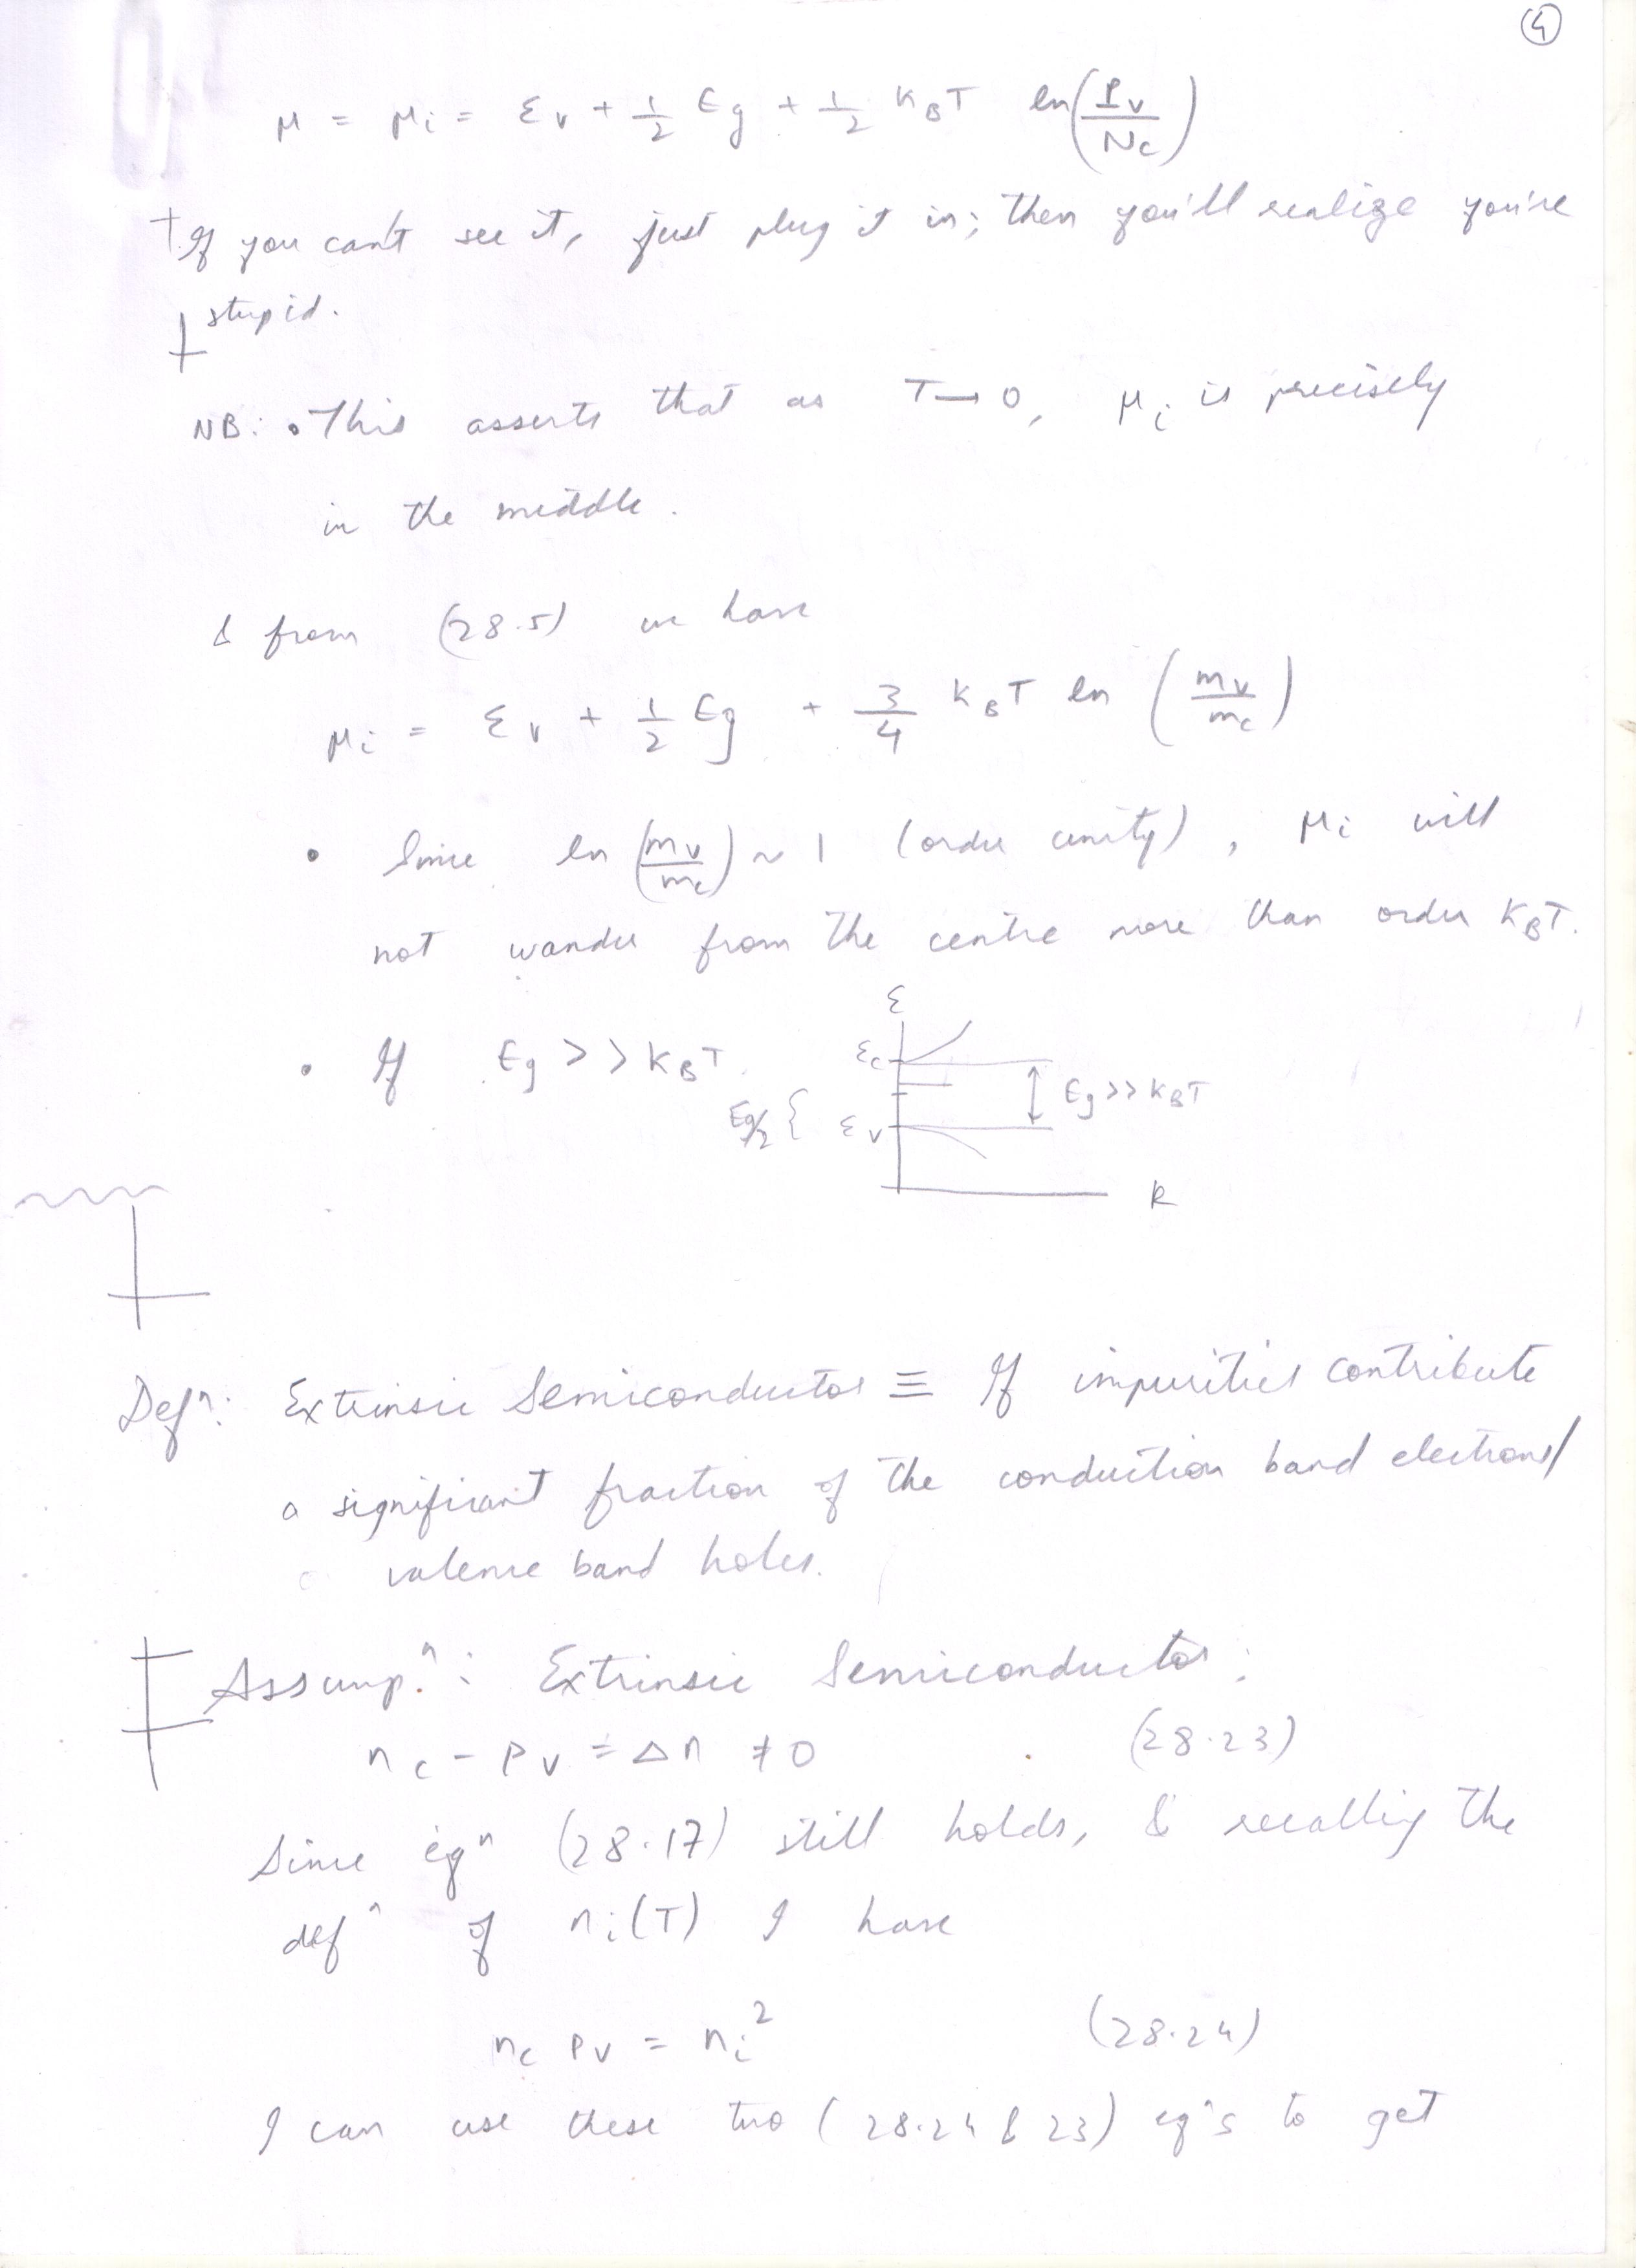 4
μ = μi = εv + 1/2 Eg + 1/2 KBT ln(Pv/Nc)
If you can't see it, just plug it in; then you'll realize you're
stupid.
NB: • This asserts that as T→0, μi is precisely
in the middle.
& from (28.5) we have
μi = εv + 1/2 Eg + 3/4 KBT ln (mv/mc)
• Since ln (mv/mc) ~ 1 (order unity), μi will
not wander from the centre more than order KBT.
• If Eg >> KBT.
ε
εc
Eg >> KBT
Eg/2 { εv
k
Defⁿ: Extrinsic Semiconductor ≡ If impurities contribute
a significant fraction of the conduction band electrons/
valence band holes.
Assumpⁿ: Extrinsic Semiconductor:
nc - pv = Δn ≠ 0 (28.23)
Since eqⁿ (28.17) still holds, & recalling the
defⁿ of ni(T) I have
nc pv = ni² (28.24)
I can use these two (28.24 & 23) eqⁿs to get